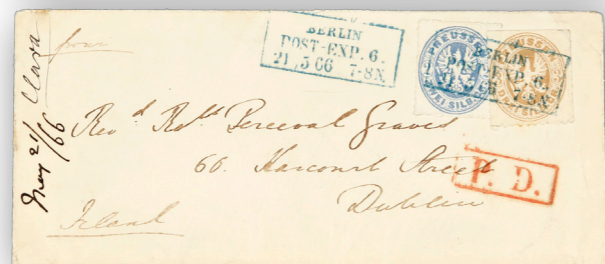 from Clara
May 21/66
BERLIN
POST-EXP. 6.
21 5 66 7-8N
PREUSSEN
ZWEI SILB
BERLIN
POST-EXP. 6.
7-8N
Revd Robt Perceval Graves
60. Harcourt Street
P. D.
Dublin
Ireland